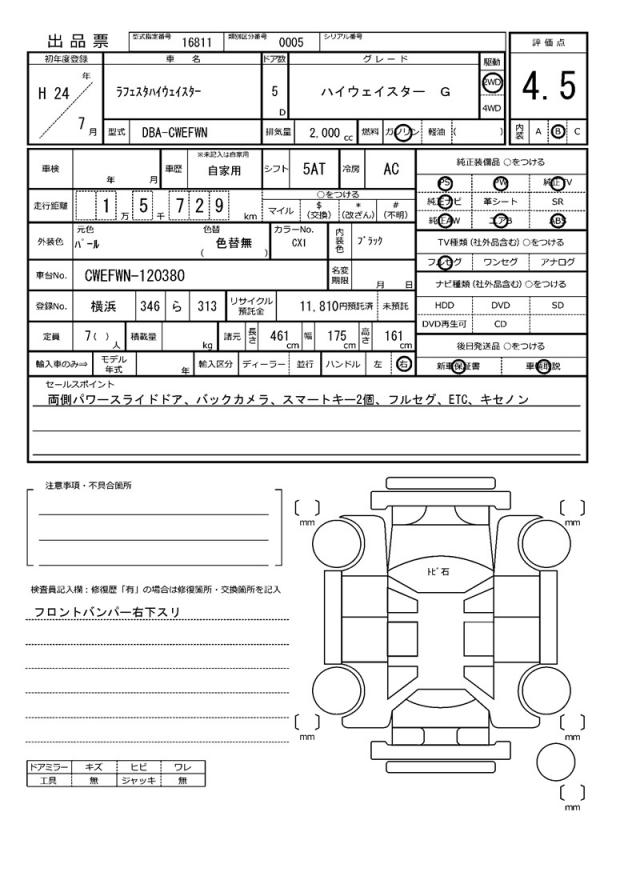 出品票 型式指定番号 16811 類別区分番号 0005 シリアル番号
初年度登録 車名 ドア数 グレード 駆動 評価点
H 24 年 7 月 ラフェスタハイウェイスター 5 D ハイウェイスター G 2WD 4WD 4.5
型式 DBA-CWEFWN 排気量 2,000 cc 燃料 ガソリン 軽油 ( ) 内装 A B C
車検 年 月 車歴 ※未記入は自家用 自家用 シフト 5AT 冷房 AC
純正装備品 ○をつける
PS PW 純正TV
純正ナビ 革シート SR
純正AW エアB ABS
走行距離 1 万 5 千 7 2 9 km ○をつける マイル $ (交換) * (改ざん) # (不明)
外装色 元色 パール 色替 色替無 ( ) カラーNo. CX1 内装色 ブラック
TV種類 (社外品含む) ○をつける
フルセグ ワンセグ アナログ
車台No. CWEFWN-120380 名変期限 月 日
ナビ種類 (社外品含む) ○をつける
HDD DVD SD
DVD再生可 CD
登録No. 横浜 346 ら 313 リサイクル預託金 11,810円預託済 未預託
定員 7( ) 人 積載量 kg 諸元 長さ 461 cm 幅 175 cm 高さ 161 cm
後日発送品 ○をつける
新車保証書 車輌取説
輸入車のみ⇒ モデル年式 年 輸入区分 ディーラー 並行 ハンドル 左 右
セールスポイント
両側パワースライドドア、バックカメラ、スマートキー2個、フルセグ、ETC、キセノン
注意事項・不具合箇所
検査員記入欄：修復歴「有」の場合は修復箇所・交換箇所を記入
フロントバンパー右下スリ
ドアミラー キズ ヒビ ワレ
工具 無 ジャッキ 無
[ ] mm
[ ] mm
トビ石
[ ] mm
[ ] mm
[ ] mm